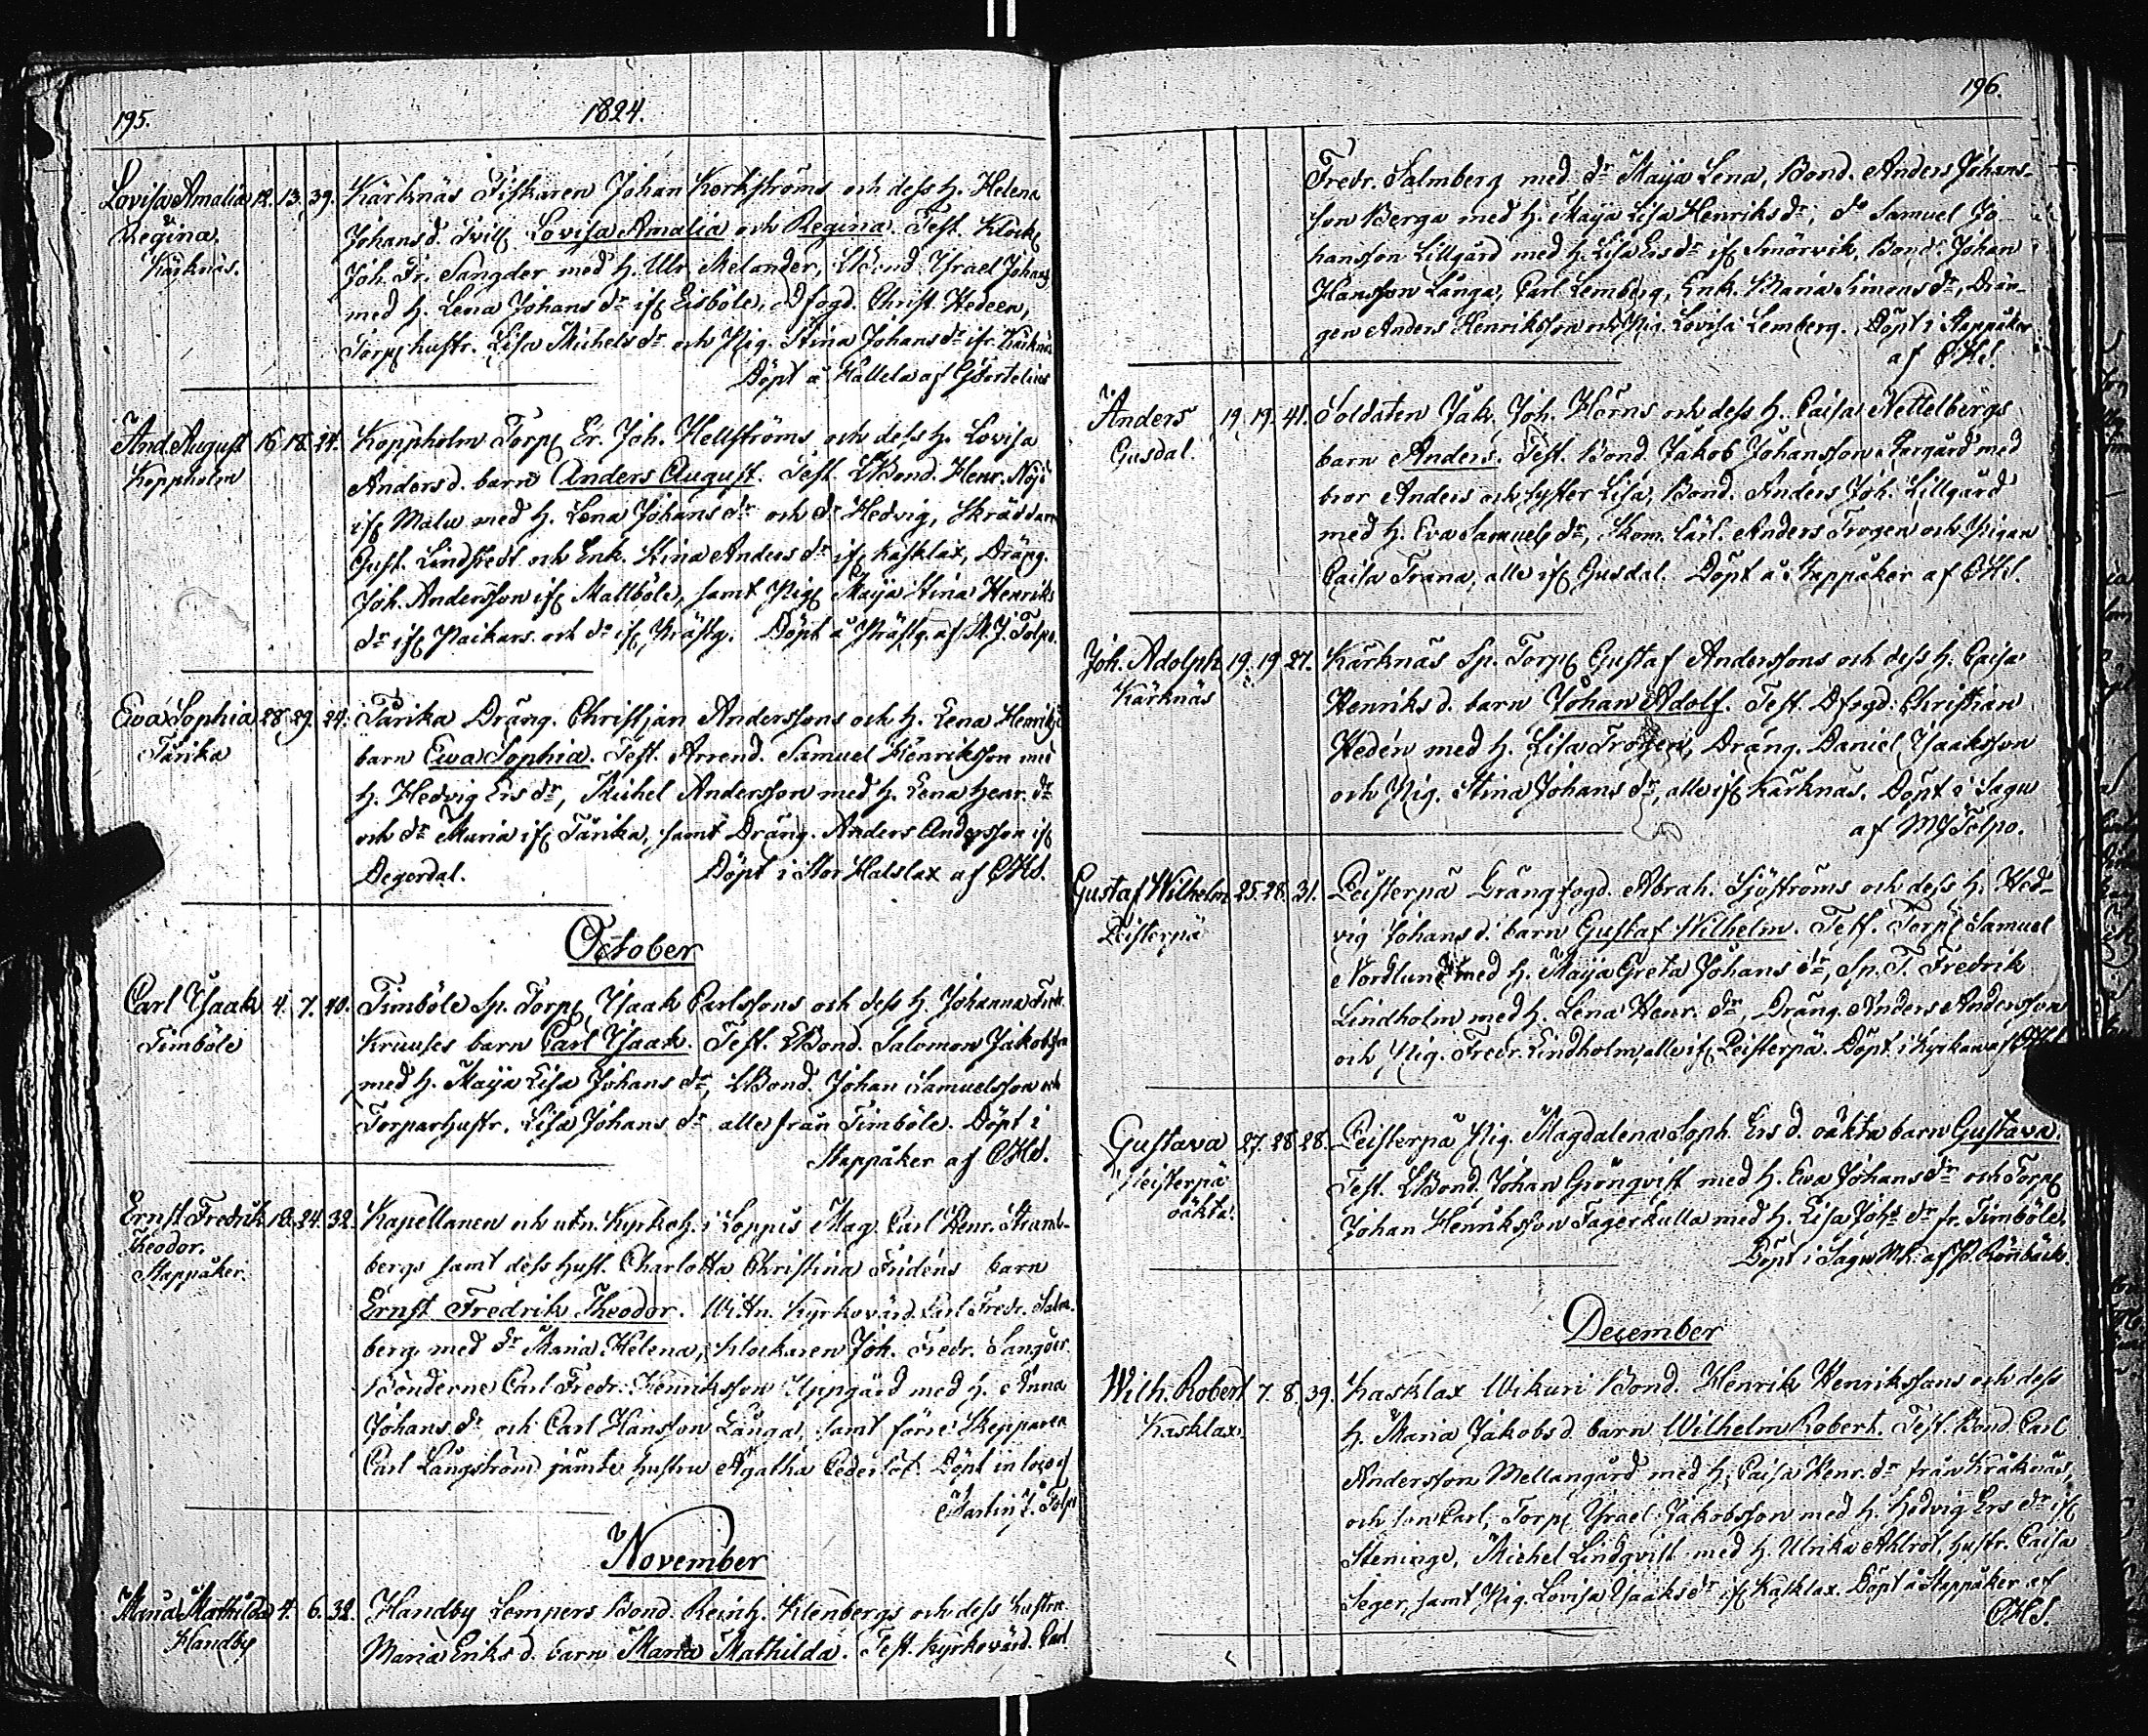 195.
1824.
Lovisa Amalia 12. 13. 39. Kärknäs Fiskaren Johan Korkströms och dess h. Helena
Regina. Johans d. Tvill. Lovisa Amalia och Regina. Test. Klock.
Kärknäs. Joh. Fr. Sangder med h. Ulr. Melander, LBond. Israel Johans
med h. Lena Johans dr if. Eisböle, Dfogd. Christ. Hedeen,
Torp. hustr. Lisa Michels dr och Pig. Stina Johans dr ifr. Kärknäs
Döpt å Hallela af
And. August 16 18. 24. Koppholm Torp. Er. Joh. Hellströms och dess h. Lovisa
Koppholm Anders d. barn Anders August. Test. LBond. Henr.
if. Malu med h. Lena Johans dr och dr Hedvig, Skräddare
Gust. Lindstedt och Enk. Stina Anders dr if. Kasklax, Dräng.
Joh. Andersson if. Mattböle, samt Pig. Maija Stina Henriks
dr if. och dr if. Prästg. Döpt å Prästg. af M. J. Tolpo.
Eva Sophia 28. 29. 24. Tärika Dräng. Christjan Anderssons och h. Lena Henriks
Tärika barn Eva Sophia. Test. Arrend. Samuel Henriksson med
h. Hedvig Ers dr, Michel Andersson med h. Lena Henr. dr
och dr Maria if. Tärika, samt Dräng. Anders Andersson if.
Degerdal. Döpt i Stor Halslax af CHS.
October
Carl Isaak 4. 7. 40. Timböle Sp. Torp. Isaak Carlssons och dess h. Johanna Fredr.
Timböle Kruuses barn Carl Isaak. Test. LBond. Salomon Jakobsson
med h. Maija Lisa Johans dr, LBond. Johan Samuelsson och
Torparhustr. Lisa Johans dr alle från Timböle. Döpt i
Stappåker af CHS.
Ernst Fredrik 18. 24. 32. Kapellanen och utn. Kyrkoh. i Loppis Mag. Carl Henr. Strand-
Theodor. bergs samt dess hust. Charlotta Christina Fridéns barn
Stappåker. Ernst Fredrik Theodor. Wittn. Kyrkovärd. Carl Fredr. Salm-
berg med dr Maria Helena, Klockaren Joh. Fredr. Sangder.
Bönderne Carl Fredr. Henriksson Uppgård med h. Anna
Johans dr och Carl Hansson Långa, samt förre Skepparen
Carl Långström jämte hustru Agatha Cederlöf. Döpt in loco af
Martin J. Tolpo
November
Maria Mathilda 4. 6. 32. Handby Lempers Bond. Reinh. Klenbergs och dess hustru
Handby Maria Eriks d. barn Maria Mathilda. Test. Kyrkovärd. Carl
196.
Fredr. Salmberg med dr Maija Lena, Bond. Anders Johans-
son Berga med h. Maija Lisa Henriks dr, do Samuel Jo-
hansson Lillgård med h. Lisa Ers dr if. Smörvik, Bond. Johan
Hansson Långa, Carl Lemberg, Enk. Maria Simons dr, Drän-
gen Anders Henriksson och Pig. Lovisa Lemberg. Döpt i Stappåker
af CHS.
Anders 19. 19. 41. Soldaten Jak. Joh. Horns och dess h. Caisa Nettelbergs
Gusdal. barn Anders. Test. Bond. Jakob Johansson Norgård med
bror Anders och syster Lisa, Bond. Anders Joh. Lillgård
med h. Eva Samuels dr, Skom. Lärl. Anders Trogen och Pigan
Caisa Trana, alle if. Gusdal. Döpt å Stappåker af CHS.
Joh. Adolph 19. 19. 27. Kärknäs Sp. Torp. Gustaf Anderssons och dess h. Caisa
Kärknäs Henriks d. barn Johan Adolf. Test. Dfogd. Christian
Hedén med h. Lisa Trogen, Dräng. Daniel Isaaksson
och Pig. Stina Johans dr, alle if. Kärknäs. Döpt i Sagu
af MJTolpo.
Gustaf Wilhelm 25. 28. 31. Peisterpä Drängfogd. Abrah. Sjöströms och dess h. Hed-
Peisterpä vig Johans d. barn Gustaf Wilhelm. Test. Torp. Samuel
Nordlund med h. Maija Greta Johans dr, Sp. T. Fredrik
Lindholm med h. Lena Henr. dr, Dräng. Anders Andersson
och Pig. Fredr. Lindholm, alle if. Peisterpä. Döpt i Kyrkan af CHS.
Gustava 27. 28. 28. Peisterpä Pig. Magdalena Soph. Ers d. oäkta barn Gustava.
Peisterpä Test. LBond. Johan Grönqvist med h. Eva Johans dr och Torp.
oäkta. Johan Henriksson Fagerkulla med h. Lisa Johs dr fr. Timböle.
Döpt i Sagu Mk. af P. Rönnbäck.
December
Wilh. Robert 7. 8. 39. Kasklax Wikuri Bond. Henrik Henrikssons och dess
Kasklax. h. Maria Jakobs d. barn Wilhelm Robert. Test. Bond. Carl
Andersson Mellangård med h. Caisa Henr. dr från Kråknäs,
och son Carl, Torp. Israel Jakobsson med h. Hedvig Ers dr if.
Steninge, Michel Lindqvist med h. Ulrika Ahlrot, hustr. Caisa
Seger, samt Pig. Lovisa Isaaks dr if. Kasklax. Döpt å Stappåker af
CHS.